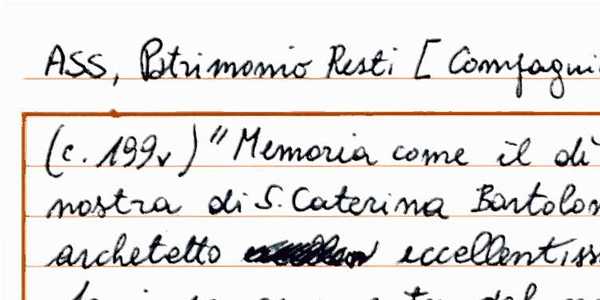 ASS, Patrimonio Resti [ Compagni
(c. 199v) "Memoria come il dì
nostra di S. Caterina Bartolom
archetetto eccellentiss